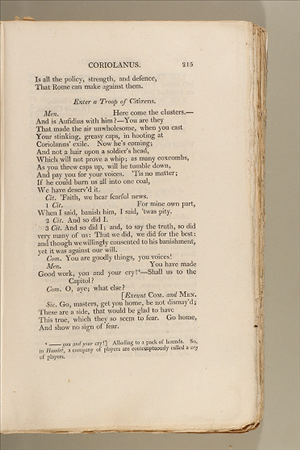 CORIOLANUS. 215
Is all the policy, strength, and defence,
That Rome can make against them.
Enter a Troop of Citizens.
Men. Here come the clusters.—
And is Aufidius with him?—You are they
That made the air unwholesome, when you cast
Your stinking, greasy caps, in hooting at
Coriolanus' exile. Now he's coming;
And not a hair upon a soldier's head,
Which will not prove a whip; as many coxcombs,
As you threw caps up, will he tumble down,
And pay you for your voices. 'Tis no matter;
If he could burn us all into one coal,
We have deserv'd it.
Cit. 'Faith, we hear fearful news.
1 Cit. For mine own part,
When I said, banish him, I said, 'twas pity.
2 Cit. And so did I.
3 Cit. And so did I; and, to say the truth, so did
very many of us: That we did, we did for the best:
and though we willingly consented to his banishment,
yet it was against our will.
Com. You are goodly things, you voices!
Men. You have made
Good work, you and your cry!⁴—Shall us to the
Capitol?
Com. O, aye; what else?
[Exeunt COM. and MEN.
Sic. Go, masters, get you home, be not dismay'd;
These are a side, that would be glad to have
This true, which they so seem to fear. Go home,
And show no sign of fear.
⁴ —— you and your cry!] Alluding to a pack of hounds. So,
in Hamlet, a company of players are contemptuously called a cry
of players.